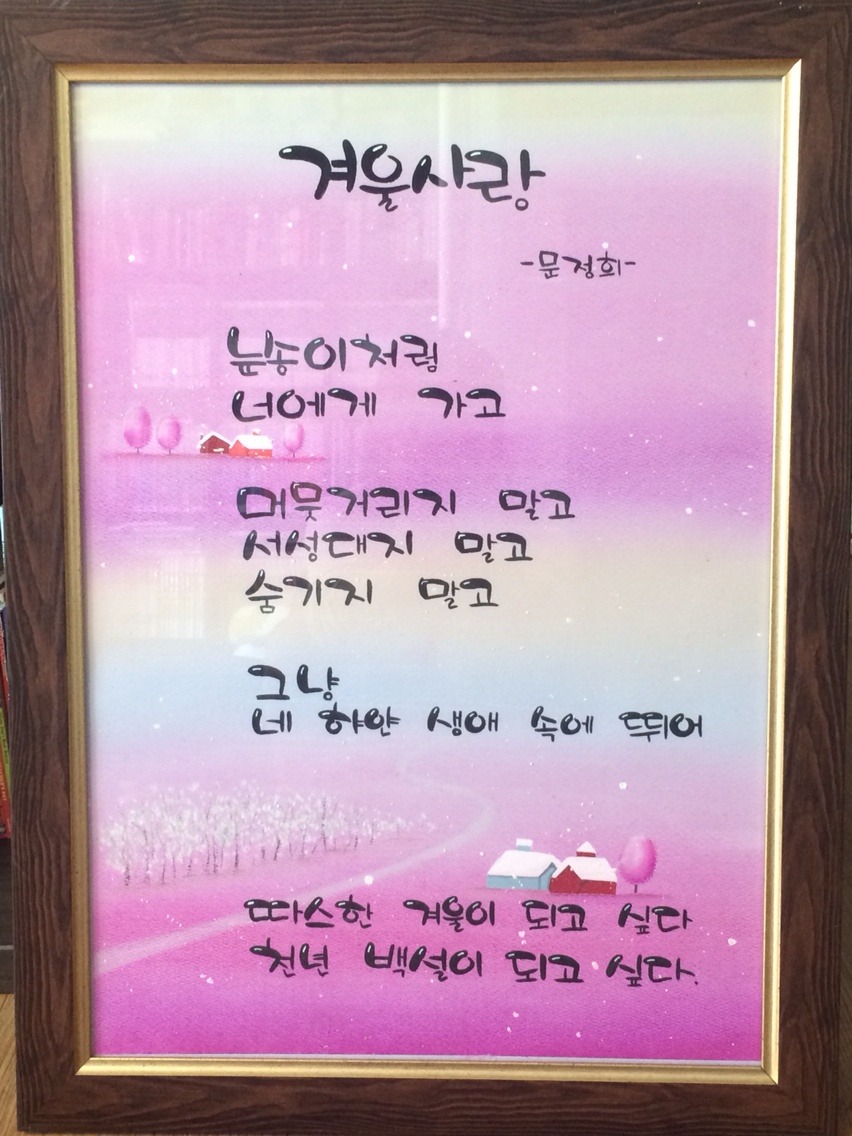 겨울사랑
-문정희-
눈송이처럼
너에게 가고
머뭇거리지 말고
서성대지 말고
숨기지 말고
그냥
네 하얀 생애 속에 뛰어
따스한 겨울이 되고 싶다
천년 백설이 되고 싶다.